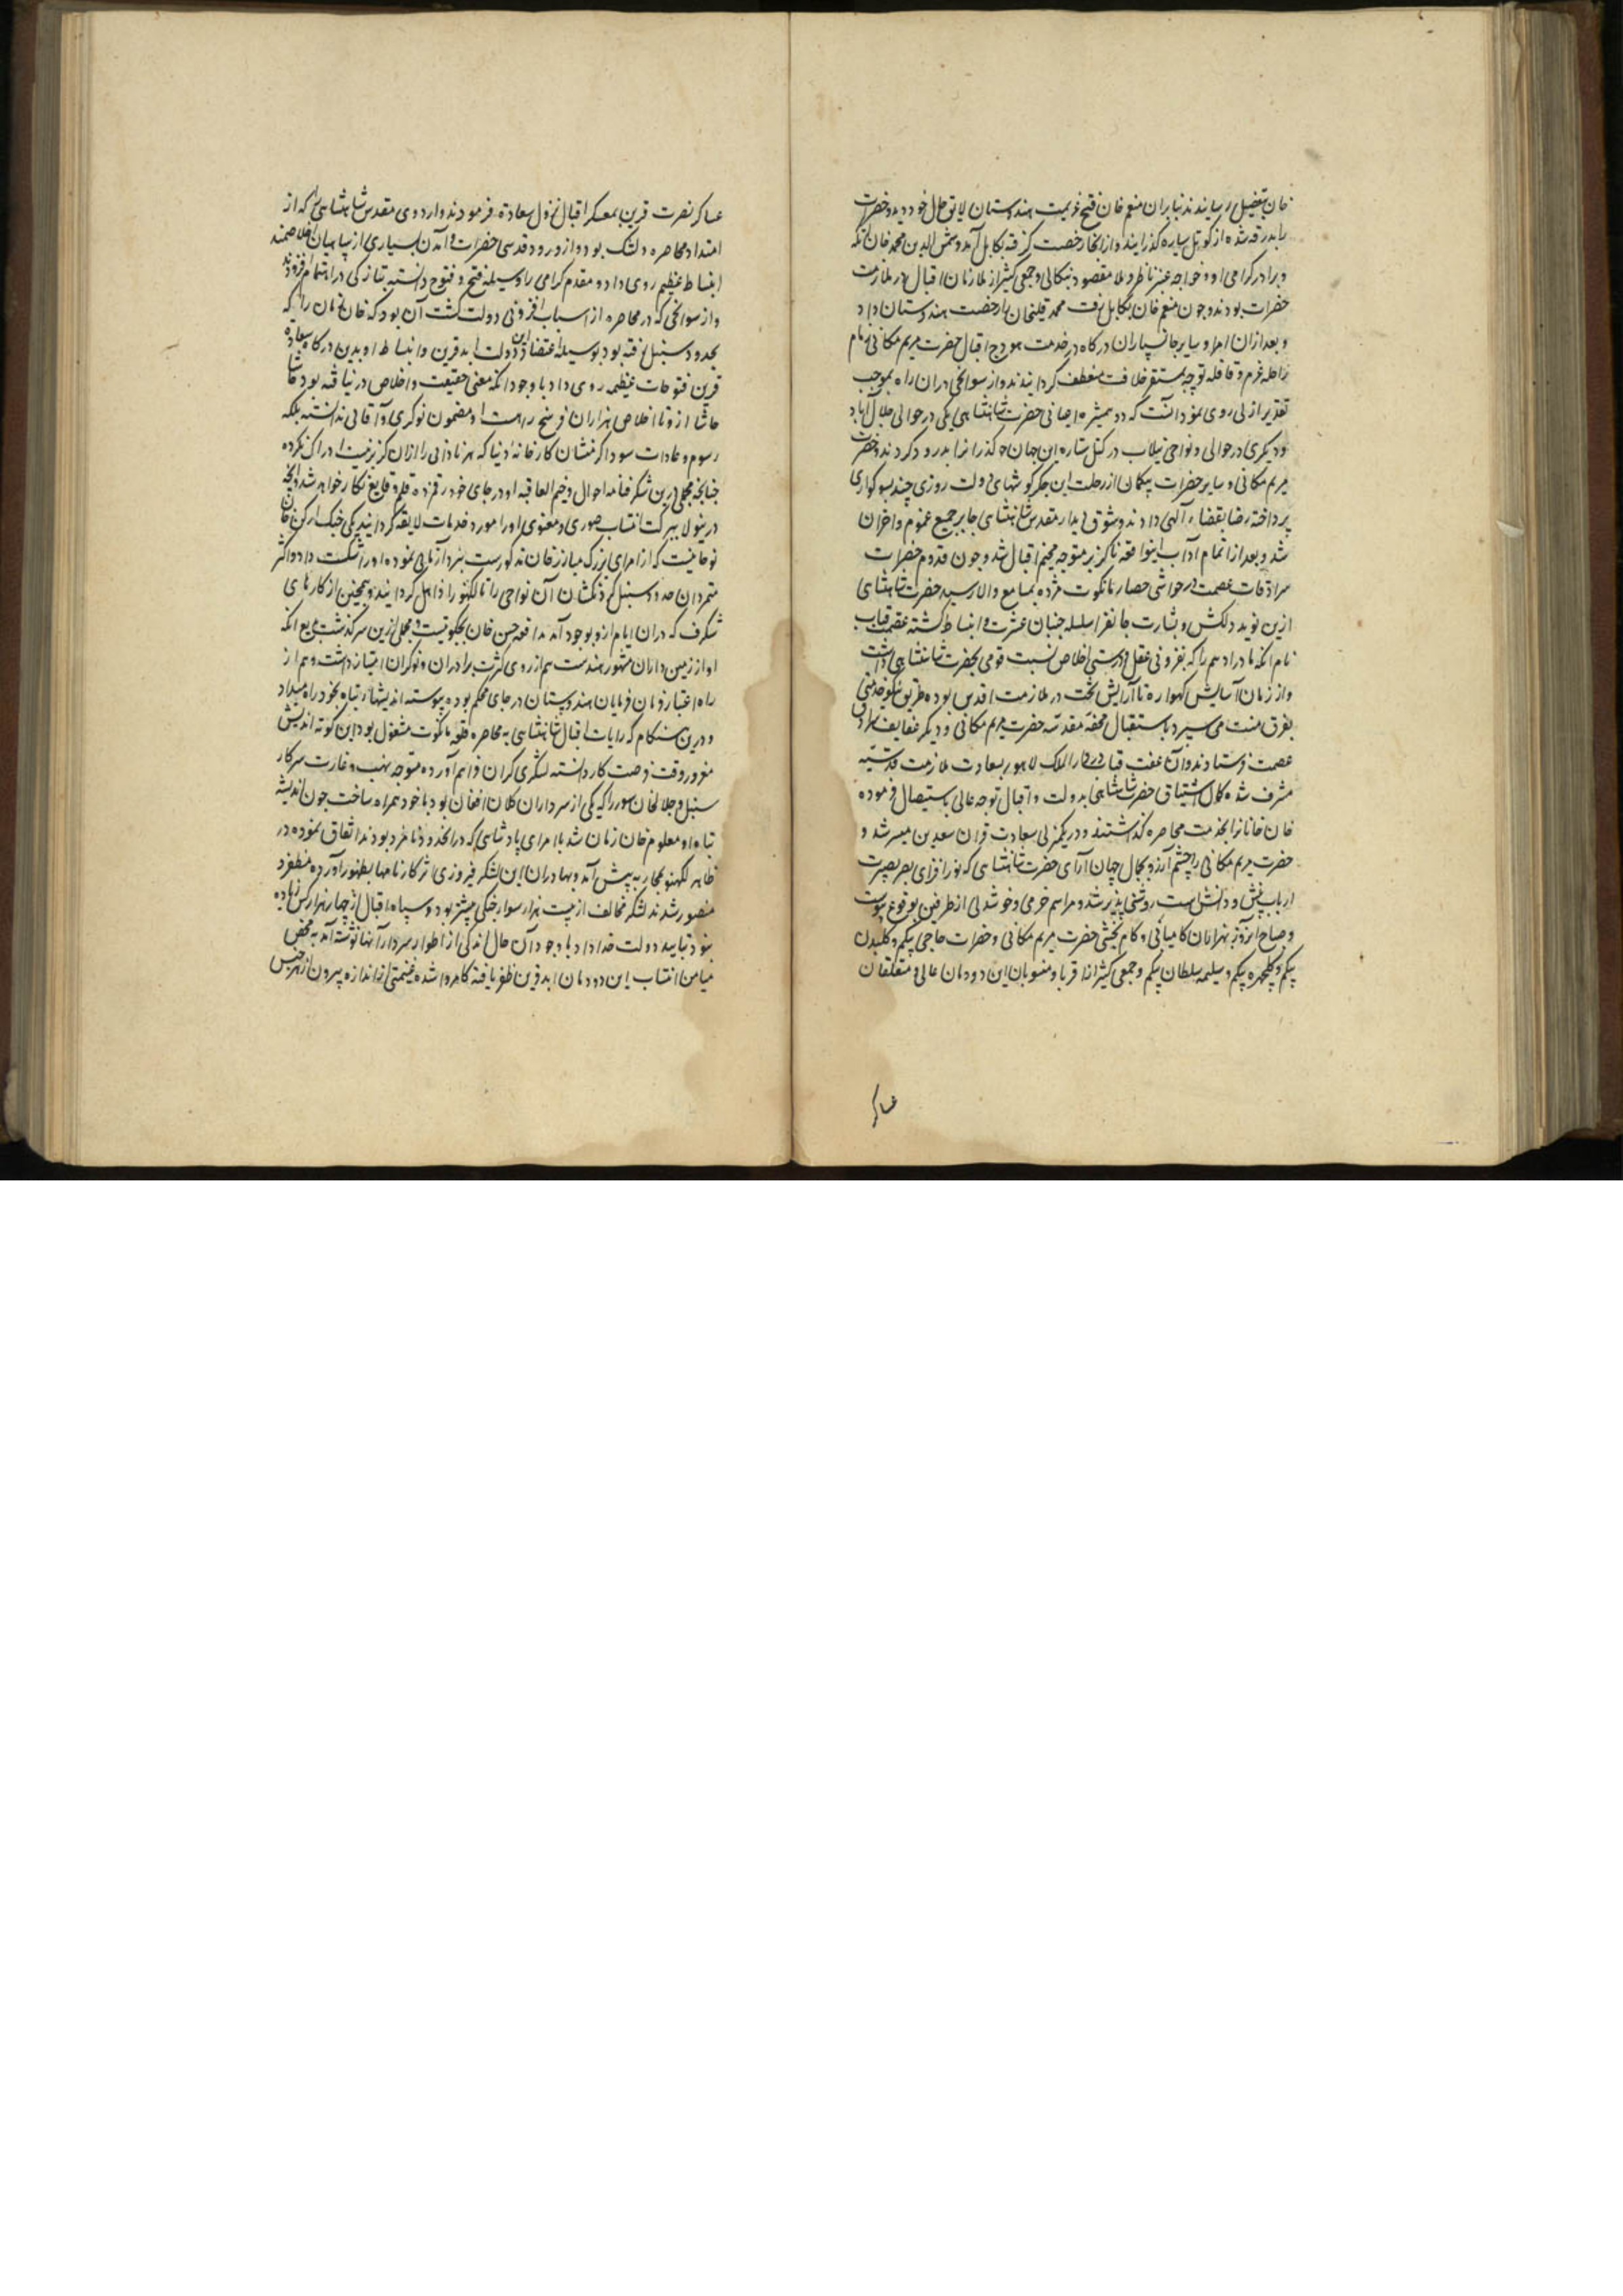 خان بتفصیل رسانیدند بنابران منعم خان فسخ عزیمت هندوستان لایق حال خود دید و حضرت
را بدرقه شده از کوتل سیاه کذرانید و از انجا رخصت کرفته بکابل آمد و شمس الدین محمد خان اتکه
و برادر کرامی او و خواجه عنبر ناظر و ملا مقصود بنکالی و جمعی کثیر از ملازمان اقبال در ملازمت
حضرات بودند و چون منعم خان بکابل رفت محمد قلیخان را رخصت هندوستان داد
و بعد ازان امرا و سایر جانسپاران درکاه در خدمت هودج اقبال حضرت مریم مکانی زمام
راحله عزم و قافله توجه بمستقر خلافت منعطف کردانیدند و از سوانحی دران راه بموجب
تقدیر ازلی روی نمود آنست که دو همشیره اعیانی حضرت شاهنشاهی یکی در حوالی جلال آباد
و دیکری در حوالی و نواحی نیلاب در کتل ستاره این جهان کذرانرا بدرود کردند و حضرت
مریم مکانی و سایر حضرات بیکمان از رحلت این جکر کوشهای دولت روزی چند بسوکواری
پرداخته رضا بقضاء الهی دادند و شوق دیدار مقدس شاهنشاهی جابر جمیع غموم و احزان
شد و بعد از اتمام آداب اینواقعه ناکزیر متوجه مخیم اقبال شد و چون قدوم حضرات
سرادقات عصمت در حواشی حصار مانکوت مژده بمسامع والا رسید حضرت شاهنشاهی
ازین نوید دلکش و بشارت جانفزا سلسله جنبان عشرت و انبساط کشته عصمت قباب
ماهم انکه مادر ادهم را که بفزونی عقل و درستی اخلاص نسبت قومی بحضرت شاهنشاهی داشت
و از زمان آسایش کهواره تا آرایش تخت در ملازمت اقدس بوده طریق نیکو خدمتی
بفرق منت می سپرد باستقبال محفه مقدسه حضرت مریم مکانی و دیکر عفایف سرادق
عصمت فرستادند و آن عفت قباب در دار الملک لاهور بسعادت ملازمت قدسیه
مشرف شده کمال اشتیاق حضرت شاهنشاهی بدولت و اقبال توجه عالی باستیصال فرموده
خان خانانرا بخدمت محاصره کذاشتند و در یکمنزلی سعادت قران سعدین میسر شد و
حضرت مریم مکانی را چشم آرزو بجمال جهان آرای حضرت شاهنشاهی که نور افزای بصر بصیرت
ارباب بینش و دانش است روشنی پذیر شد و مراسم خرمی و خوشدلی از طرفین بوقوع پیوست
و صباح آنروز بهزاران کامیابی و کام بخشی حضرت مریم مکانی و حضرات حاجی بیکم و کلبدن
بیکم و کلچهره بیکم و سلیمه سلطان بیکم و جمعی کثیر از اقربا و منسوبان این دودمان عالی و متعلقان
عساکر
عساکر نصرت قرین بمعسکر اقبال نزول سعادت فرمودند و اردوی مقدس شاهنشاهی را که از
امتداد محاصره دلتنک بود و از ورود قدسی حضرات و آمدن بسیاری از سپاهیان اخلاصمند
انبساط عظیم روی داد و مقدم کرامی را وسیله فتح و فتوح دانسته بتازکی در اهتمام افزودند
و از سوانحی که در محاصره از اسباب افزونی دولت کشت آن بود که خان زمان را که
بحدود سنبل رفته بود بوسیله اعتضاد این دولت ابد قرین و انبساط او بدین درکاه سعادت
قرین فتوحات عظیمه روی داد با وجود آنکه معنی حقیقت و اخلاص در نیافته بود حاشا
حاشا ازو تا اخلاص هزاران فرسخ راهست او مضمون نوکری و آقائی ندانسته بلکه
رسوم و عادات سوداکر منشان کارخانه دنیا که هر نادانی را ازان کزیر نیست ادراک نکرده
چنانچه مجملی درین شکرفنامه احوال وخیم العاقبه او در جای خود رقمزده قلم وقایع نکار خواهد شد القصه
درینولا ببرکت انتساب صوری و معنوی او را مورد خدمات لایقه کردانید یکی جنک رکن خان
نوحانیست که از امرای بزرک مبارز خان مذکورست نبردآزمائی نموده او را شکست داد و اکثر
متمردان حدود سنبل کردنکشان آن نواحی را تا لکهنو را ذاهل کردانید و همچنین از کارهای
شکرف که دران ایام ازو بوجود آمد مدافعه حسن خان بچکوتیست و مجملی ازین سرکذشت بدیع آنکه
او از زمینداران مشهور هندست هم از روی کثرت برادران و نوکران امتیاز داشت و هم از
راه اعتبار فرمان فرمایان هندوستان در جای محکم بوده پیوسته اندیشهای تباه بخود راه میداد
و درین هنکام که رایات اقبال شاهنشاهی بمحاصره قلعه مانکوت مشغول بود این کوته اندیش
مغرور وقت فرصت کار دانسته لشکری کران فراهم آورده متوجه نهب و غارت سرکار
سنبل و جلالخان سور را که یکی از سرداران کلان افغان بود با خود همراه ساخت چون اندیشه
تباه او معلوم خان زمان شد با امرای پادشاهی که درانحدود نامزد بودند اتفاق نموده در
ظاهر لکهنو بمحاربه پیش آمد و بهادران این لشکر فیروزی اثر کارنامها بظهور آورده مظفر و
منصور شدند لشکر مخالف از بیست هزار سوار جنکی بیشتر بود و سپاه اقبال از چهار هزار کس زیاده
نبود بتایید دولت خداداد با وجود آن حال اندکی از اطوار سردار آنها نوشته آمد به محض
میامن انتساب این دودمان ابد قرین ظفر یافته کامروا شده غنیمتی از اندازه بیرون از هر جنس